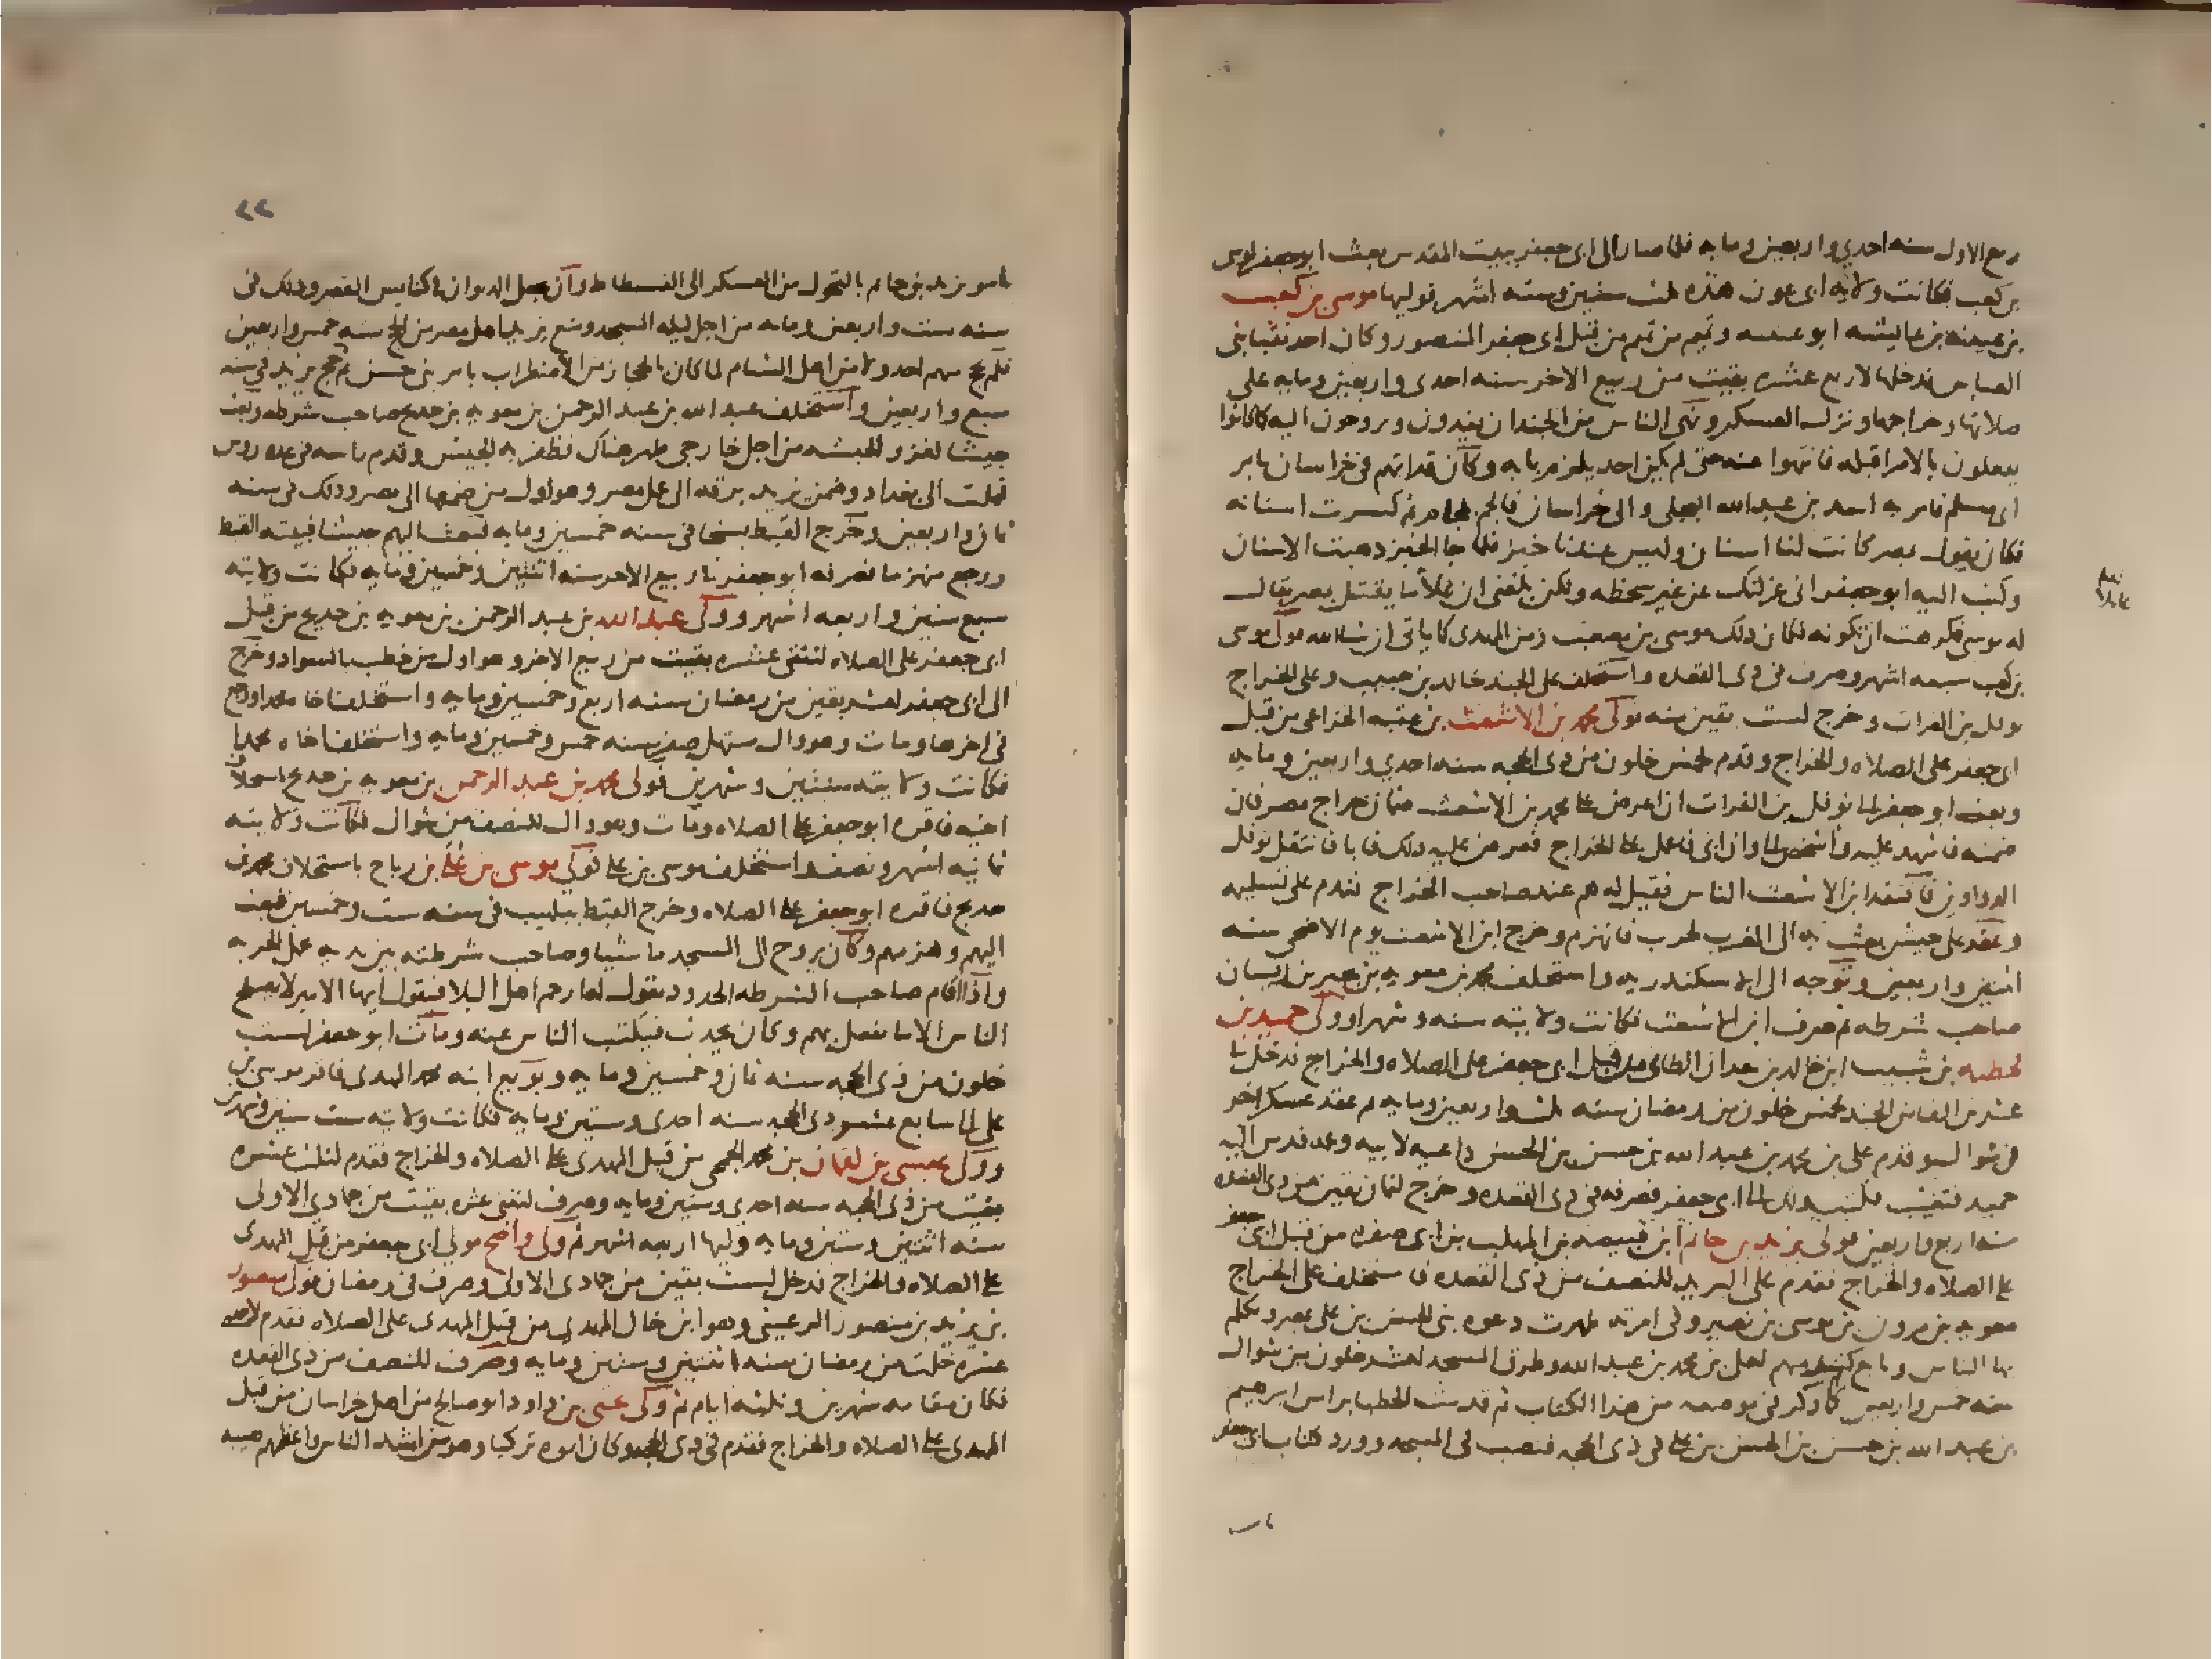 ربيع الاول سنه احدي واربعين ومايه فلما صار الى ابى جعفر ببيت المقدس بعث ابو جعفر موسى
بن كعب فكانت ولايه ابى عون هذه ثلث سنين وسته اشهر فوليها موسى بن كعب
بن عيينه بن عايشه ابو عيينه من تميم من قبل ابى جعفر المنصور وكان احد نقبا بنى
العباس فدخلها لاربع عشره بقيت من ربيع الاخر سنه احدى واربعين ومايه على
صلاتها وخراجها ونزل العسكر ونهى الناس من الجند ان يغدون ويروحون اليه كما كانوا
يفعلون بالامرا قبله فانتهوا عنه حتى لم يكن احد يلزم بابه وكان قد اتهم فى خراسان بامر
ابى مسلم فامر به اسد بن عبد الله البجلى والى خراسان فالجم بلجام ثم كسرت اسنانه
فكان يقول بمصر كانت لنا اسنان وليس عندنا خبز فلما جا الخبز ذهبت الاسنان
وكتب اليه ابو جعفر انى عزلتك عن غير سخطه ولكن بلغنى ان غلاما يقتل بمصر يقال
له موسى فكرهت ان تكونه فكان ذلك موسى بن مصعب زمن المهدى كما ياتى ان شا الله فولى موسى
بن كعب سبعه اشهر وصرف فى ذى القعده واستخلف على الجند خالد بن حبيب وعلى الخراج
نوفل بن الفرات وخرج لست بقين منه فولى محمد بن الاشعث بن عقبه الخزاعى من قبل
ابى جعفر على الصلاه والخراج وقدم لخمس خلون من ذى الحجه سنه احدي واربعين ومايه
وبعث ابو جعفر الى نوفل بن الفرات ان اعرض على محمد بن الاشعث ضمان خراج مصر فان
ضمنه فاشهد عليه واشخص الى وان ابى فاعمل على الخراج فعرض عليه ذلك فابا فانتقل نوفل
الدواوين فافتقد ابن الاشعث الناس فقيل له هم عند صاحب الخراج فندم على تسليمه
وعقد على جيش بعث به الى المغرب لحرب فانهزم وخرج ابن الاشعث يوم الاضحى سنه
اثنين واربعين وتوجه الى الاسكندريه واستخلف محمد بن معويه بن بحير بن ريسان
صاحب شرطه ثم صرف ابن الاشعث فكانت ولايته سنه وشهرا وولى حميد بن
قحطبه بن شبيب ابن خالد بن معدان الطاى من قبل ابى جعفر على الصلاه والخراج فدخل فى
عشرين الفا من الجند لخمس خلون من رمضان سنه ثلث واربعين ومايه ثم عقد عسكر اخر
فى شوال وقدم على بن محمد بن عبد الله بن حسن بن الحسن داعيه لابيه وعمه فدس اليه
حميد فتغيب فكتب بذلك الى ابى جعفر فصرفه فى ذى القعده وخرج لثمان بقين من ذى القعده
سنه اربع واربعين فولى يزيد بن حاتم ابن قبيصه بن المهلب بن ابى صفره من قبل ابى جعفر
على الصلاه والخراج فقدم على البريد للنصف من ذى القعده فاستخلف على الخراج
معويه بن مروان بن موسى بن نصير وفى امرته ظهرت دعوه بنى الحسن بن على بمصر وتكلم
بها الناس وبايع كثير منهم لعلى بن محمد بن عبد الله وطرق المسجد لعشر خلون من شوال
سنه خمس واربعين كما ذكر فى موضعه من هذا الكتاب ثم قدمت الخطبا براس ابرهيم
بن عبد الله بن حسن بن الحسن بن على فى ذى الحجه فنصب فى المسجد وورد كتاب ابى جعفر
٢٢
يامر يزيد بن حاتم بالتحول من العسكر الى الفسطاط وان يجعل الديوان فى كنايس القصر وذلك فى
سنه ست واربعين ومايه من اجل ليله المسجد ومنع يزيد اهل مصر من الحج سنه خمس واربعين
فلم يحج منهم احد ولا من اهل الشام لما كان بالحجاز من الاضطراب بامر بنى حسن ثم حج يزيد فى سنه
سبع واربعين واستخلف عبد الله بن عبد الرحمن بن معويه بن حديج صاحب شرطه وبعث
جيشا لغزو الحبشه من اجل خارجى ظهر هناك فظفر به الجيش وقدم براسه فى عده روس
فحملت الى بغداد وضمن يزيد برقه الى عمل مصر وهو اول من ضمها الى مصر وذلك فى سنه
ثمان واربعين وخرج القبط بسخا فى سنه خمسين ومايه فبعث اليهم جيشا فبيته القبط
ورجع منهزما فصرفه ابو جعفر فى ربيع الاخر سنه اثنتين وخمسين ومايه فكانت ولايته
سبع سنين واربعه اشهر وولى عبد الله بن عبد الرحمن بن معويه بن حديج من قبل
ابى جعفر على الصلاه لثنتى عشره بقيت من ربيع الاخر وهو اول من خطب بالسواد وخرج
الى ابى جعفر لعشر بقين من رمضان سنه اربع وخمسين ومايه واستخلف اخاه محمدا ورجع
فى اخرها ومات وهو وال مستهل صفر سنه خمس وخمسين ومايه واستخلف اخاه محمدا
فكانت ولايته سنتين وشهرين فولى محمد بن عبد الرحمن بن معويه بن حديج استخلاف
اخيه فاقره ابو جعفر على الصلاه ومات وهو وال للنصف من شوال فكانت ولايته
ثمانيه اشهر ونصفا واستخلف موسى بن على فولى موسى بن على بن رباح باستخلاف محمد بن
حديج فاقره ابو جعفر على الصلاه وخرج القبط ببلهيب فى سنه ست وخمسين فبعث
اليهم وهزمهم وكان يروح الى المسجد ماشيا وصاحب شرطته بين يديه يحمل الحربه
واذا اقام صاحب الشرطه الحدود يقول له ارحم اهل البلا فيقول ايها الامير لا يصلح
الناس الا ما يفعل بهم وكان يحدث فيكتب الناس عنه ومات ابو جعفر لست
خلون من ذى الحجه سنه ثمان وخمسين ومايه وبويع ابنه محمد المهدى فاقر موسى بن
على الى سابع عشر ذى الحجه سنه احدى وستين ومايه فكانت ولايته ست سنين وشهرين
وولى عيسى بن لقمان بن محمد الجمحى من قبل المهدى على الصلاه والخراج فقدم لثلث عشره
بقيت من ذى الحجه سنه احدى وستين ومايه وصرف لثنتى عشره بقيت من جمادى الاولى
سنه اثنتين وستين ومايه وليها اربعه اشهر ثم ولى واضح مولى ابى جعفر من قبل المهدى
على الصلاه والخراج فدخل لست بقين من جمادى الاولى وصرف فى رمضان فولى منصور
بن يزيد بن منصور الرعينى وهو ابن خال المهدى من قبل المهدى على الصلاه فقدم لاحدى
عشره خلت من رمضان سنه اثنتين وستين ومايه وصرف للنصف من ذى القعده
فكان مقامه شهرين وثلثه ايام ثم ولى يحيى بن داود ابو صالح من اهل خراسان من قبل
المهدى على الصلاه والخراج فقدم فى ذى الحجه وكان ابوه تركيا وهو من اشد الناس واعظمهم هيبه